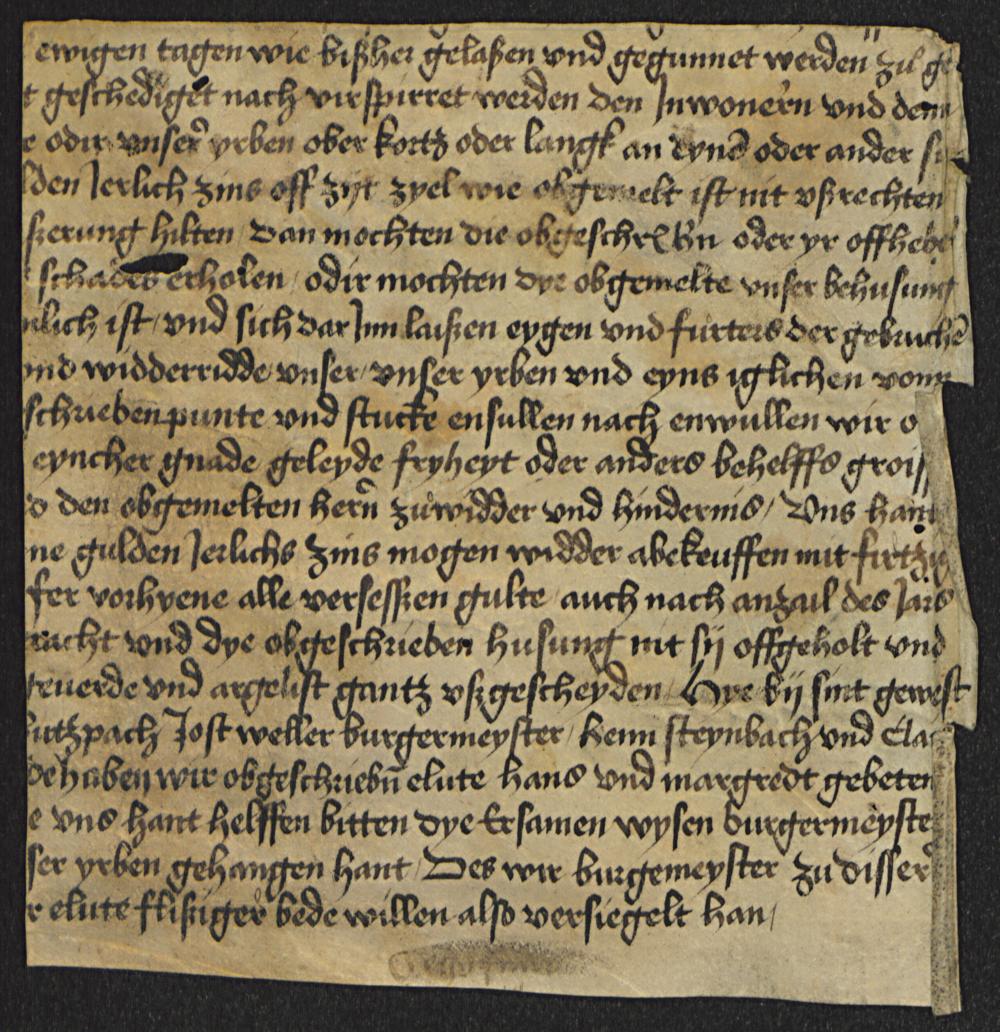 ewigen tagen wie bißher gelaßen vnd gegunnet werden zu ge
t geschediget nach virspirret werden den Jnwonern vnd dem
e odir vnser yrben ober kortz oder langk an eyne oder ander
lden Jerlich zins off zijt zyel wie obgemelt ist nit vßrechten
ßerung hilten Dan mochten die obgeschrebn oder yr offheber
schades erholen / odir mochten dye obgemelte vnser behusung
nlich ist / vnd sich dar Jnn laißen eygen vnd furters der gebruchē
vnd widderridde vnser / vnser yrben vnd eyns iglichen vonn
schrieben punte vnd stucke ensullen nach enwullen wir o
eyncher gnade geleyde fryheyt oder anders behelffs groiß
d den obgemelten hern zuwidder vnd hindernis / Vns hant
ne gulden Jerlichs zins mogen widder abekeuffen mit firtzig
fer vorhyene alle versesszen gulte auch nach anzail des Jars
racht vnd dye obgeschrieben husung nit sij offgeholt vnd
geuerde vnd argelist gantz vßgescheyden / Hye bij sint gewest
butzpach Jost weller burgermeyster / Henn steynbach vnd Cla
de haben wir obgeschriebn elute hans vnd margredt gebeten
e vns hant helffen bitten dye Ersamen wysen burgermeyste
ser yrben gehangen hant / Des wir burgemeyster zu disser
r elute flißiger bede willen also versiegelt han /